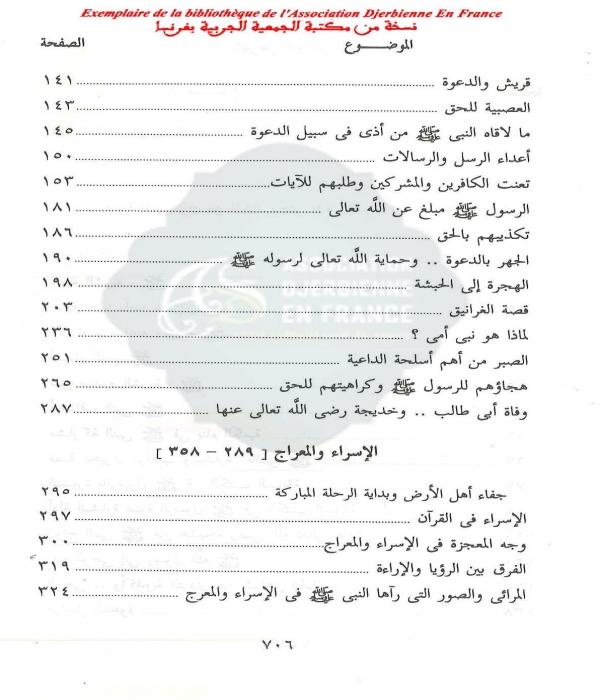 Exemplaire de la bibliothèque de l'Association Djerbienne En France
نسخة من مكتبة الجمعية الجربية بفرنسا
الموضـــوع الصفحة
قريش والدعوة ........ ١٤١
العصبية للحق ........ ١٤٣
ما لاقاه النبى ﷺ من أذى فى سبيل الدعوة ........ ١٤٥
أعداء الرسل والرسالات ........ ١٥٠
تعنت الكافرين والمشركين وطلبهم للآيات ........ ١٥٣
الرسول ﷺ مبلغ عن اللَّه تعالى ........ ١٨١
تكذيبهم بالحق ........ ١٨٦
الجهر بالدعوة .. وحماية اللَّه تعالى لرسوله ﷺ ........ ١٩٠
الهجرة إلى الحبشة ........ ١٩٨
قصة الغرانيق ........ ٢٠٣
لماذا هو نبى أمى ؟ ........ ٢٣٦
الصبر من أهم أسلحة الداعية ........ ٢٥١
هجاؤهم للرسول ﷺ وكراهيتهم للحق ........ ٢٦٥
وفاة أبى طالب .. وخديجة رضى اللَّه تعالى عنها ........ ٢٨٧
الإسراء والمعراج [ ٢٨٩ - ٣٥٨ ]
جفاء أهل الأرض وبداية الرحلة المباركة ........ ٢٩٥
الإسراء فى القرآن ........ ٢٩٧
وجه المعجزة فى الإسراء والمعراج ........ ٣٠٠
الفرق بين الرؤيا والإراءة ........ ٣١٩
المرائى والصور التى رآها النبى ﷺ فى الإسراء والمعرج ........ ٣٢٤
٧٠٦
ASSOCIATION
DJERBIENNE
EN FRANCE